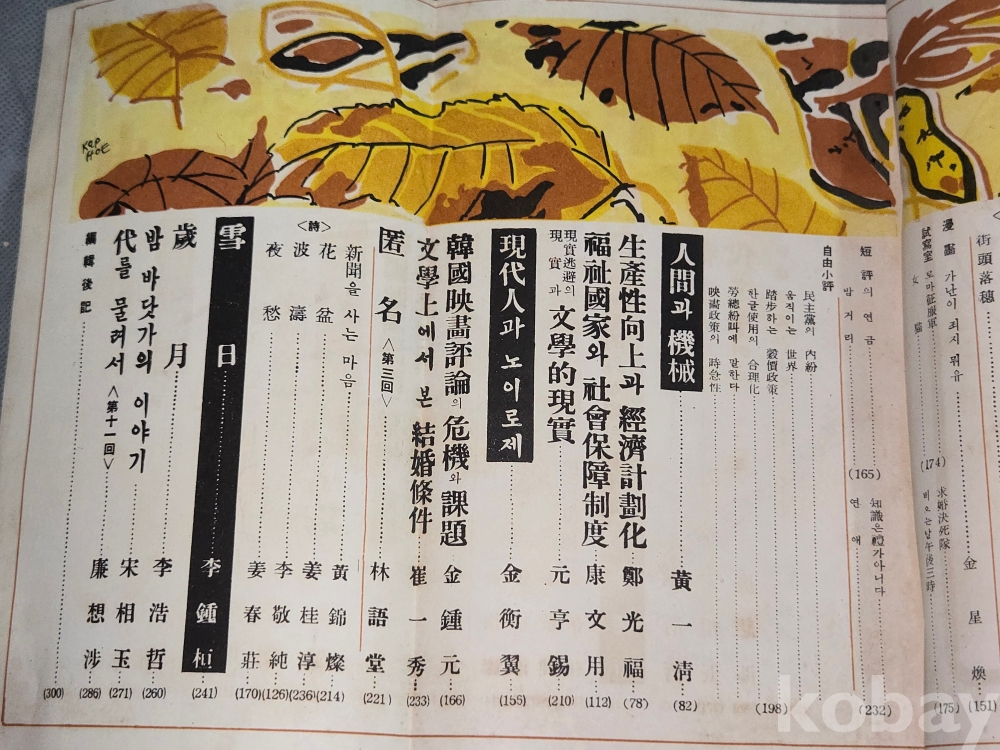 街頭落穗 金星煥 (151)
漫畵 가난이 죄지 뭐유
試寫室 로마征服軍 (174) 求婚決死隊
女 猫 비오는날午後三時 (175)
短評의 연금 (165) 知識은禮가아니다
밤거리 연애 (232)
自由小評
民主黨의 內紛
움직이는 世界
踏步하는 穀價政策
한글使用의 合理化
勞總粉糾에 말한다
映畵政策의 時急性
(198)
人間과 機械 黃一淸 (82)
生產性向上과 經濟計劃化 鄭光福 (78)
福祉國家와 社會保障制度 康文用 (112)
現實逃避의
現實과 文學的現實 元亨錫 (210)
現代人과 노이로제 金衡翼 (155)
韓國映畫評論의 危機와 課題 金鍾元 (166)
文學上에서 본 結婚條件 崔一秀 (233)
匿名 <第三回> 林語堂 (221)
新聞을 사는 마음 黃錦燦 (214)
<詩>
花盆 姜桂淳 (236)
波濤 李敬純 (126)
夜愁 姜春莊 (170)
雪日 李鍾桓 (241)
歲月 李浩哲 (260)
밤 바닷가의 이야기 宋相玉 (271)
代를 물려서 <第十一回> 廉想涉 (286)
編輯後記 (300)
KAP HOE
kobay